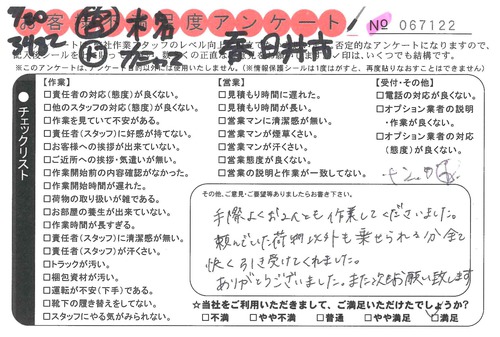 お客様満足度アンケート
№ 067122
7/20
春日井市
※このアンケートは、アンケート目的以外には使用いたしません。(※情報保護シールは1度はがすと、再度貼りなおすことはできません)
チェックリスト
【作業】
□責任者の対応(態度)が良くない。
□他のスタッフの対応(態度)が良くない。
□作業を見ていて不安がある。
□責任者(スタッフ)に好感が持てない。
□お客様への挨拶が出来ていない。
□ご近所への挨拶・気遣いが無い。
□作業開始前の内容確認がなかった。
□作業開始時間が遅れた。
□荷物の取り扱いが雑である。
□お部屋の養生が出来ていない。
□作業時間が長すぎる。
□責任者(スタッフ)に清潔感が無い。
□責任者(スタッフ)が汗くさい。
□トラックが汚い。
□梱包資材が汚い。
□運転が不安(下手)である。
□靴下の履き替えをしてない。
□スタッフにやる気がみられない。
【営業】
□見積もり時間に遅れた。
□見積もり時間が長い。
□営業マンに清潔感が無い。
□営業マンが煙草くさい。
□営業マンが汗くさい。
□営業態度が良くない。
□営業の説明と作業が一致してない。
【受付・その他】
□電話の対応が良くない。
□オプション業者の説明
・作業が良くない。
□オプション業者の対応
(態度)が良くない。
その他、ご意見・ご要望等ありましたらお書き下さい。
手際よくお2人とも作業してくださいました。
頼んでいた荷物以外も乗せられる分全て
快く引き受けてくれました。
ありがとうございました。また次もお願い致します
☆当社をご利用いただきまして、ご満足いただけたでしょうか?
□不満 □やや不満 □普通 □やや満足 □満足